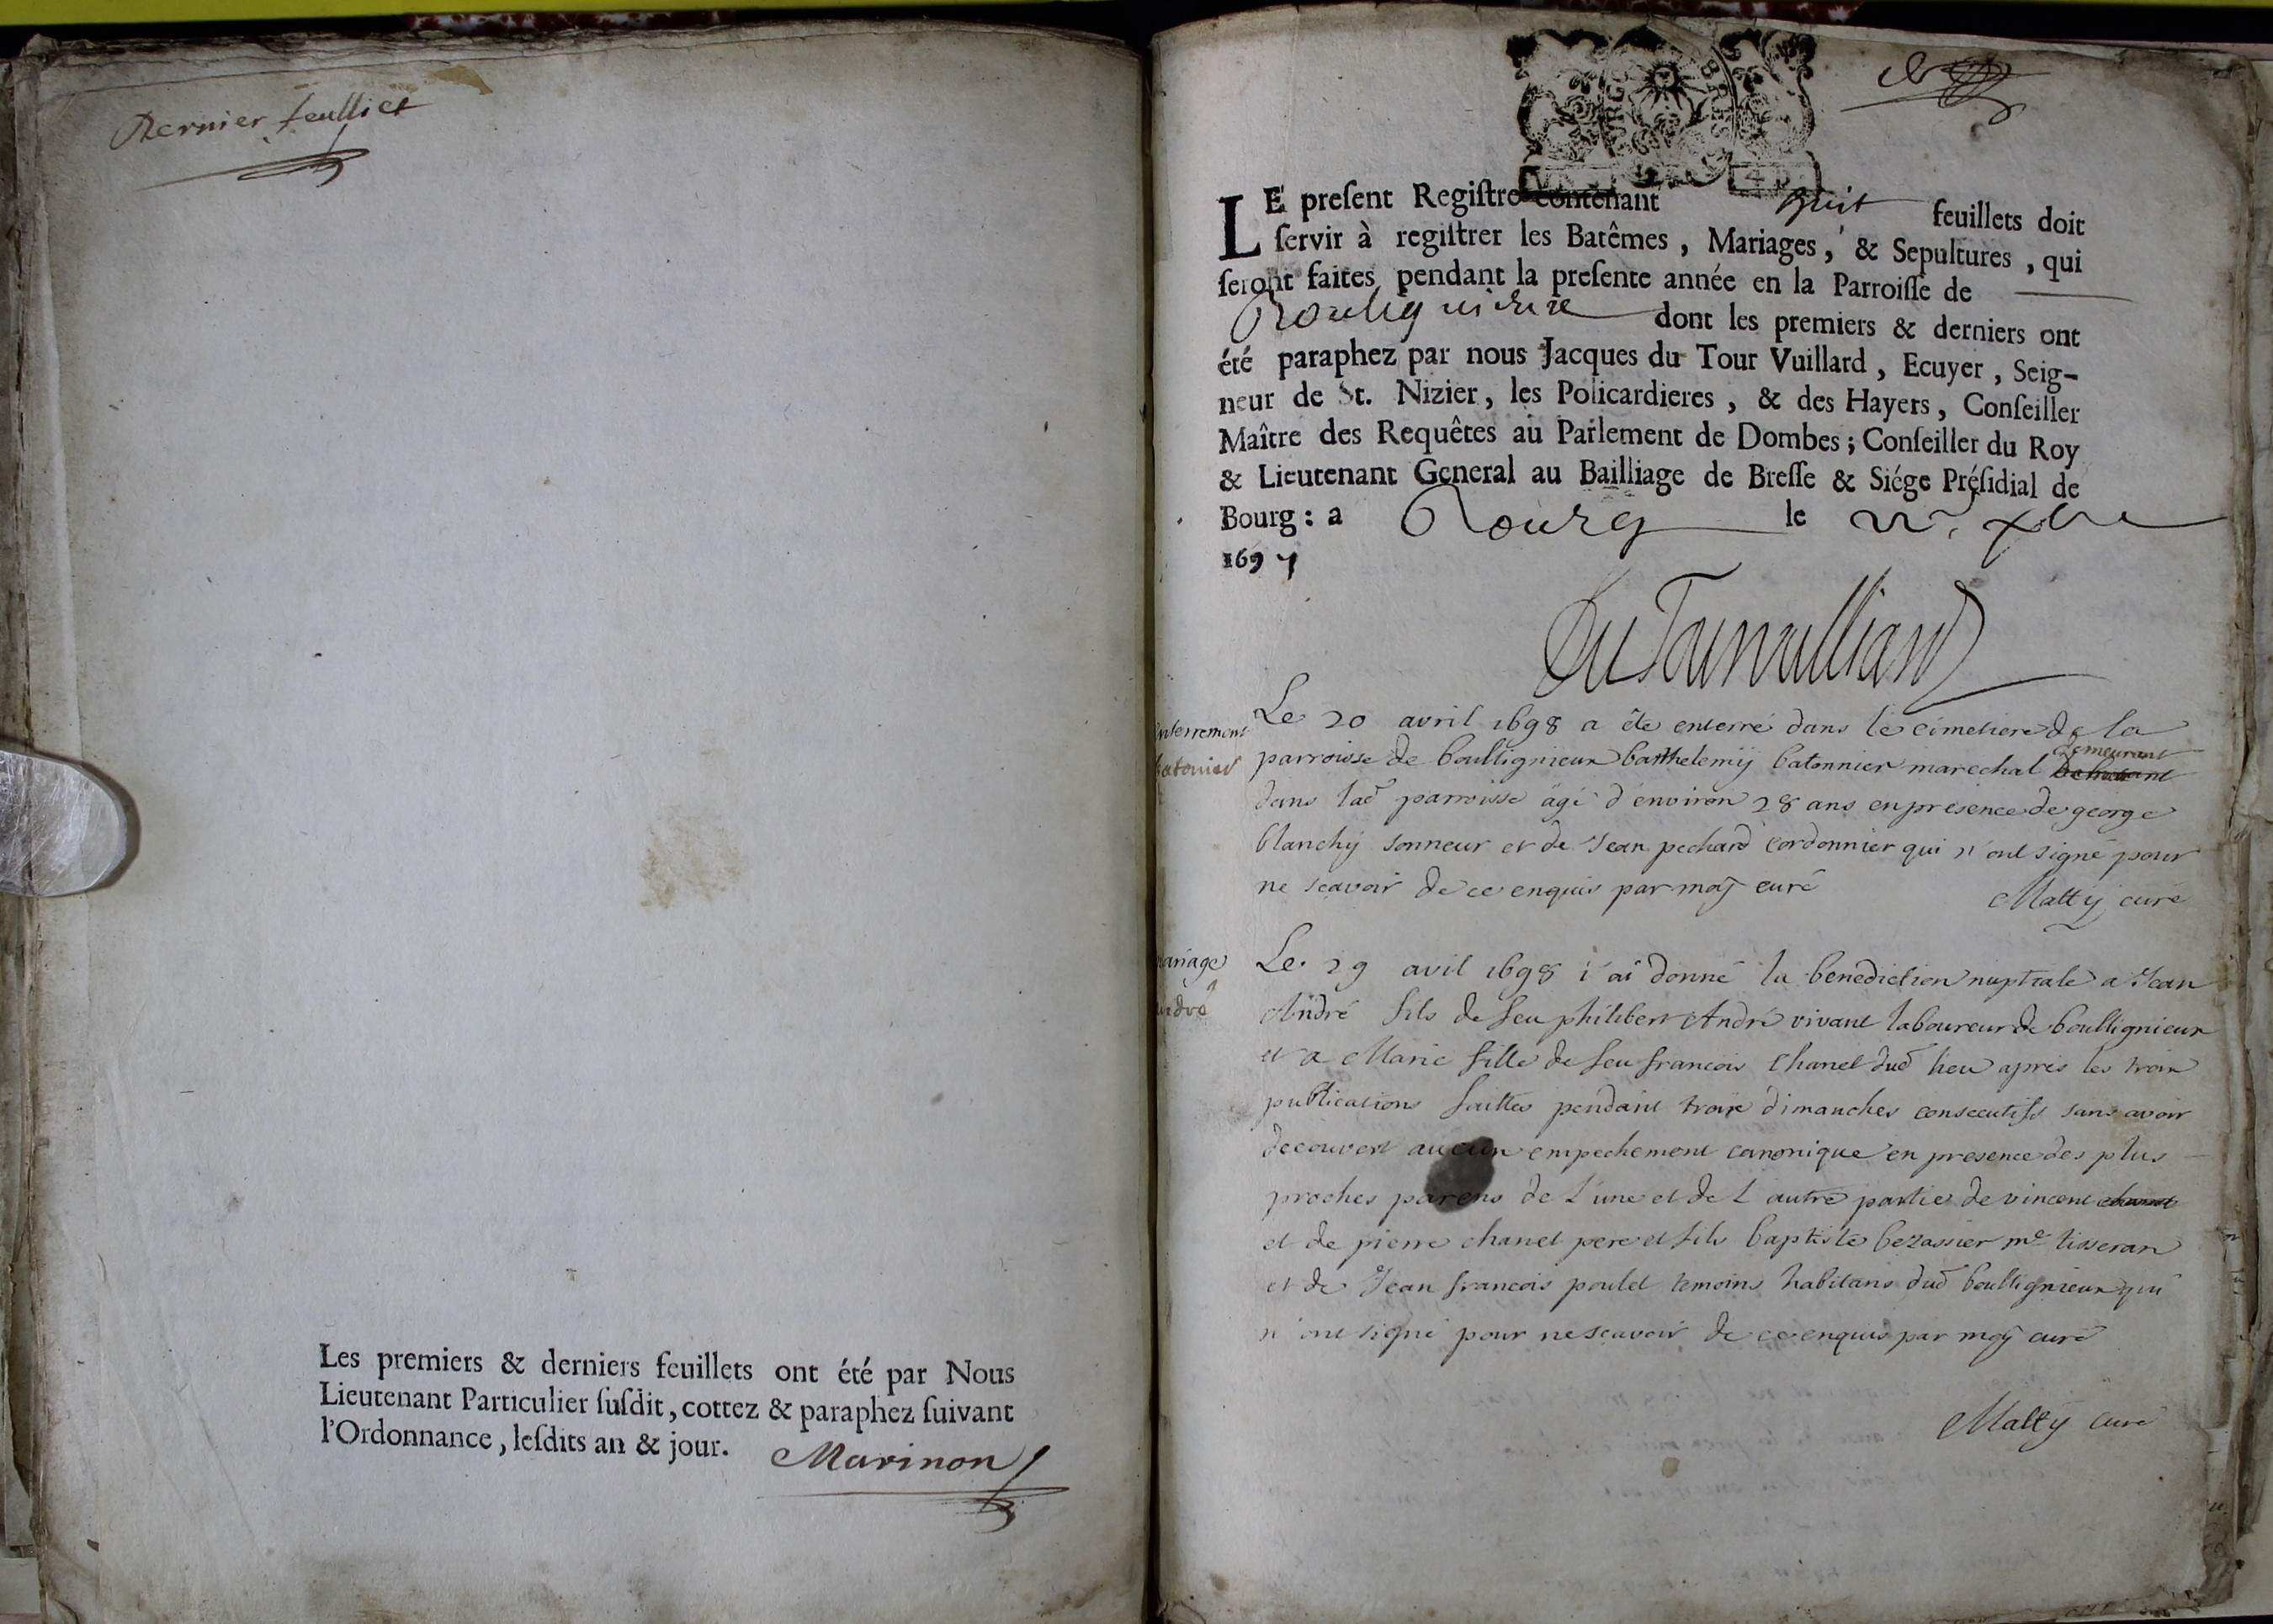 Dernier feulliet
Les premiers & derniers feuillets ont été par Nous
Lieutenant Particulier suſdit, cottez & paraphez ſuivant
l'Ordonnance, leſdits an & jour.
Marinon
LE preſent Regiſtre contenant huit feuillets doit
ſervir à regiſtrer les Batêmes, Mariages, & Sepultures, qui
ſeront faites pendant la preſente année en la Parroiſſe de
Boulignieux dont les premiers & derniers ont
été paraphez par nous Jacques du Tour Vuillard, Ecuyer, Seig-
neur de St. Nizier, les Policardieres, & des Hayers, Conſeiller
Maître des Requêtes au Parlement de Dombes; Conſeiller du Roy
& Lieutenant General au Bailliage de Breſſe & Siége Préſidial de
Bourg: a Bourg le xbre
1697
DuTourvulliard
enterrement
batonier
Le 20 avril 1698 a éte enterré dans le cimetiere de la
parroisse de boullignieux barthelemÿ batonnier marechal demeurant
dans lad parroisse agé d'environ 28 ans en presence de george
blanchÿ sonneur et de Jean pechard cordonnier qui n'ont signé pour
ne scavoir de ce enquis par moÿ curé
Maltÿ curé
mariage
andré
Le 29 avil 1698 i'ai donné la benediction nuptiale a Jean
André fils de feu philibert André vivant laboureur de boullignieux
et a Marie fille de feu francois Chanel dud lieu apres les trois
publications faittes pendant trois dimanches consecutifs sans avoir
decouvert aucun empechement canonique en presence des plus
proches parens de l'une et de l'autre partie de vincent
et de pierre chanel pere et fils baptiste bezassier me tisseran
et de Jean francois poulet temoins habitans dud boullignieux qui
n'ont signé pour ne scavoir de ce enquis par moÿ curé
Maltÿ curé